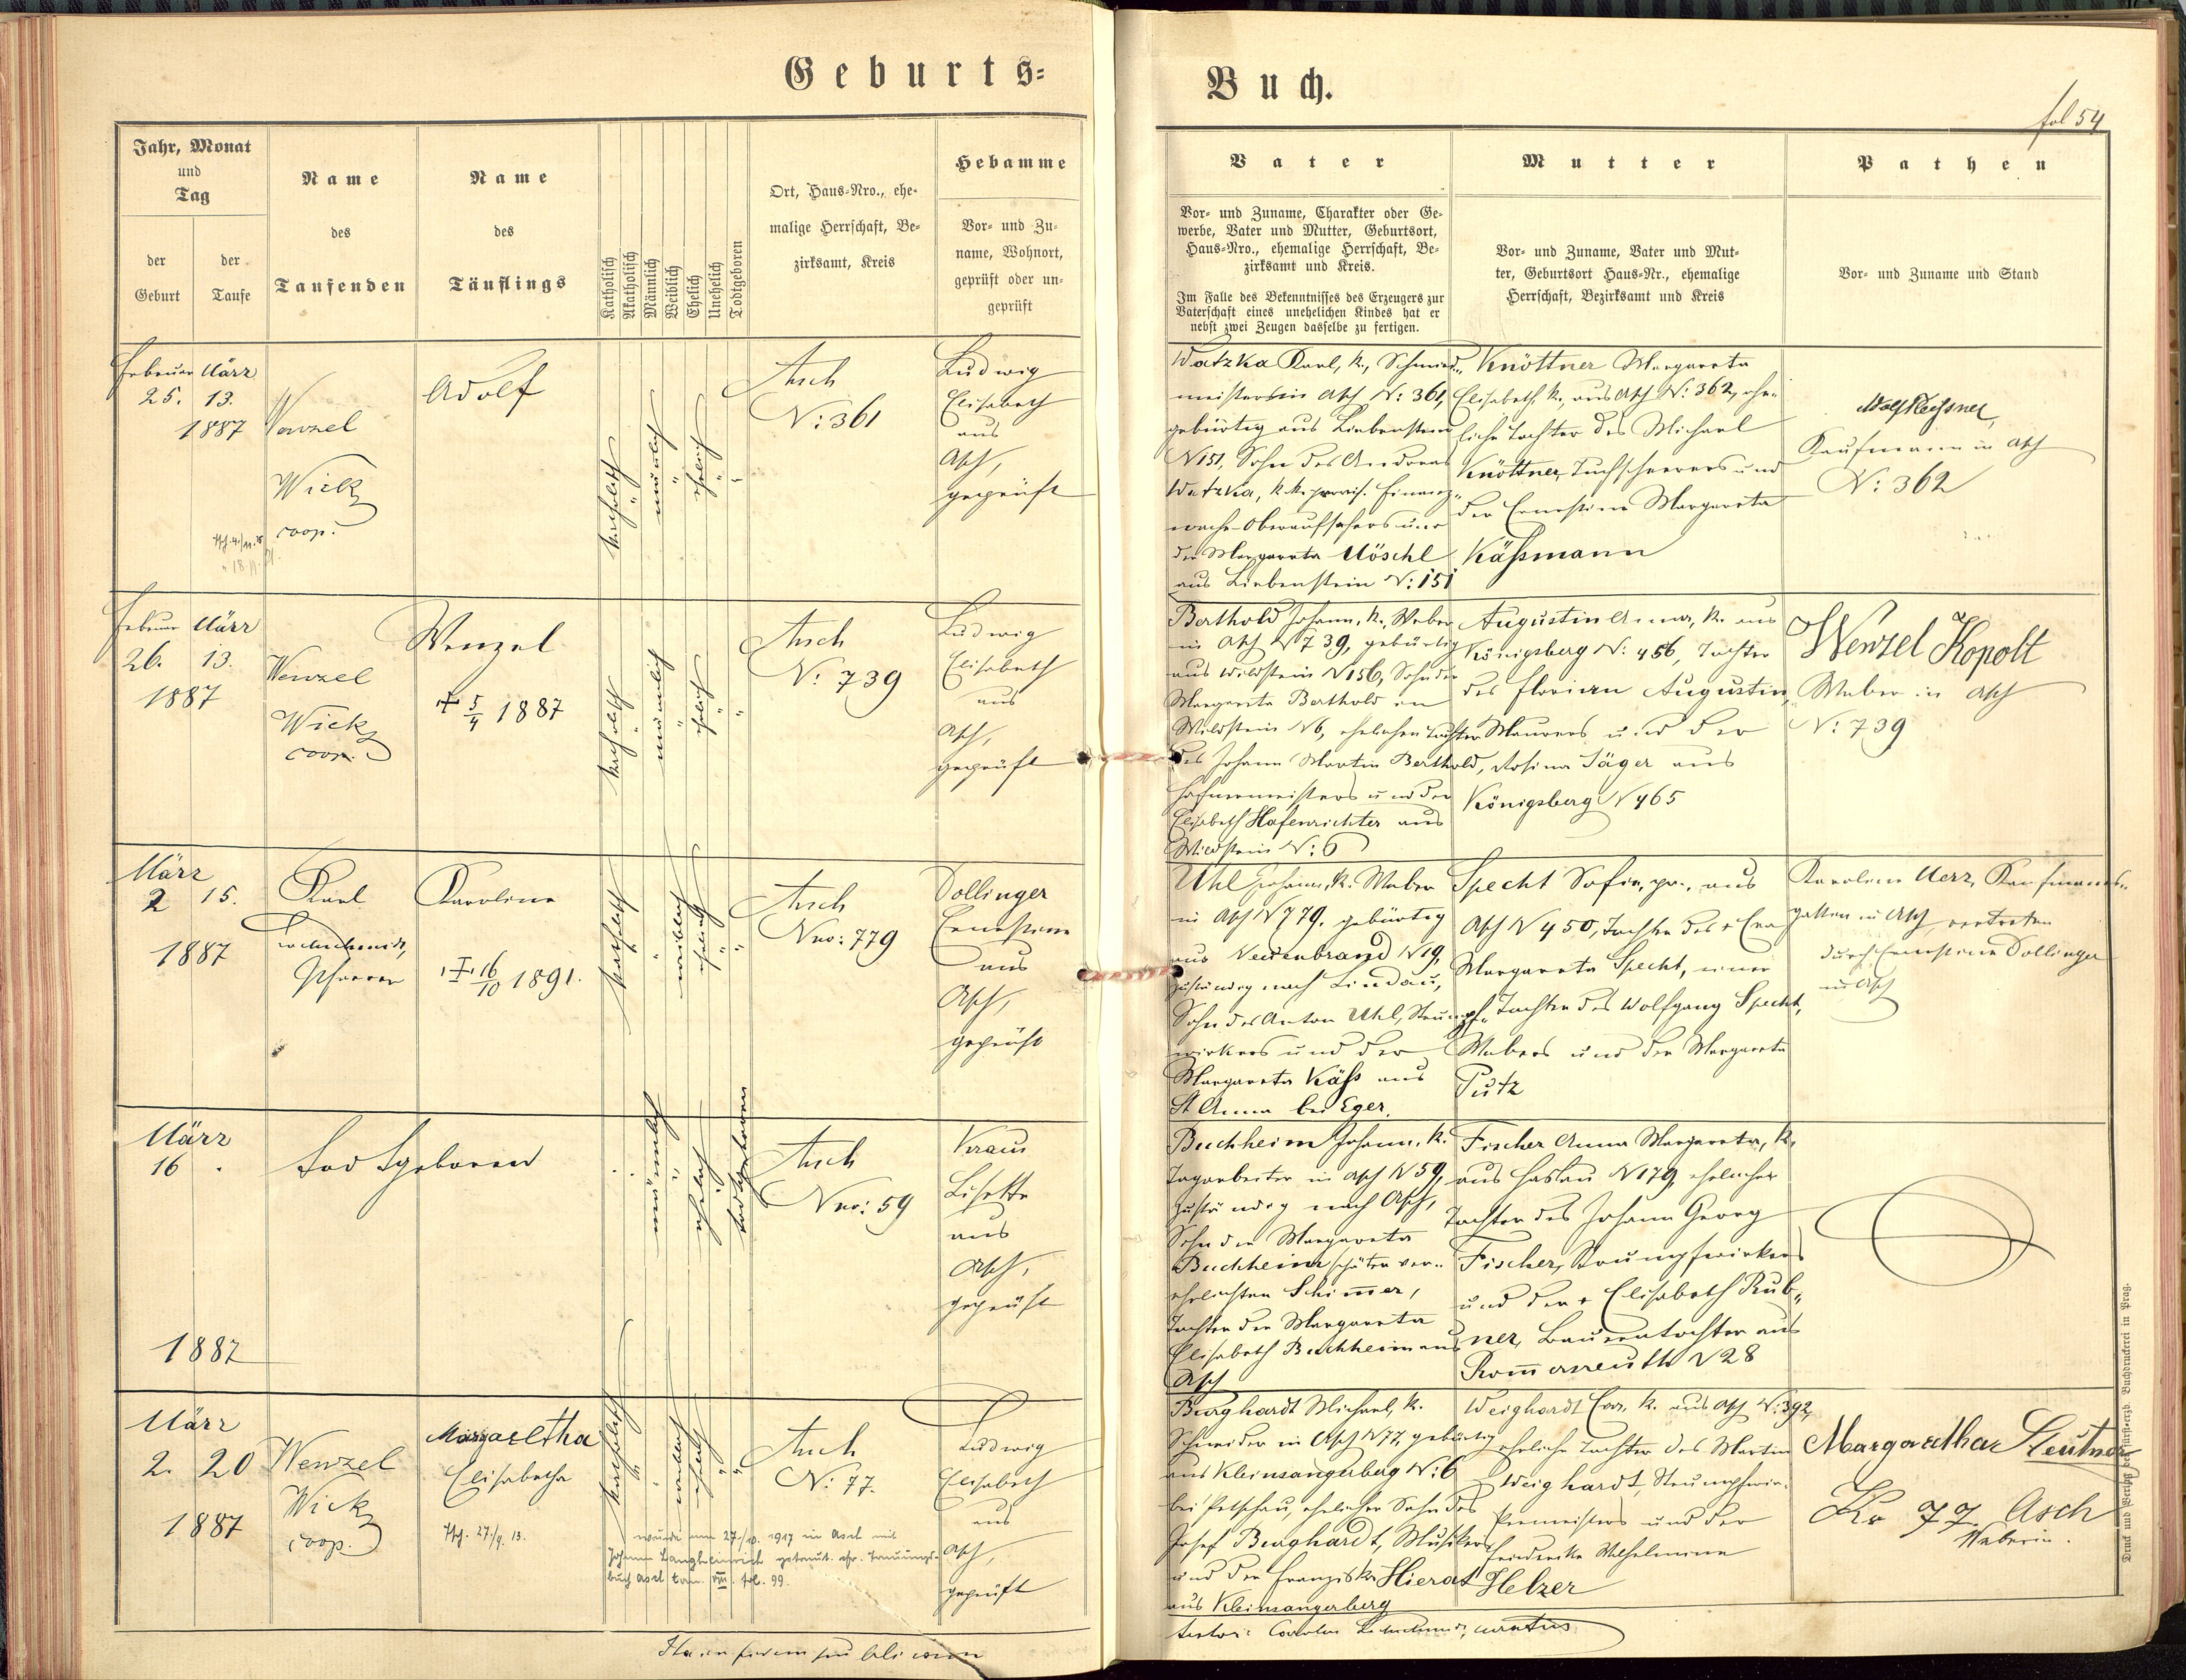 Geburts=
Buch.
fol 54
Jahr, Monat
und
Tag
der
Geburt
der
Taufe
Name
des
Taufenden
Name
des
Täuflings
Katholisch
Akatholisch
Männlich
Weiblich
Ehelich
Unehelich
Todtgeboren
Ort, Haus-Nro., ehe-
malige Herrschaft, Be-
zirksamt, Kreis
Hebamme
Vor- und Zu-
name, Wohnort,
geprüft oder un-
geprüft
Vater
Vor- und Zuname, Charakter oder Ge-
werbe, Vater und Mutter, Geburtsort,
Haus-Nro., ehemalige Herrschaft, Be-
zirksamt und Kreis.
Im Falle des Bekenntnisses des Erzeugers zur
Vaterschaft eines unehelichen Kindes hat er
nebst zwei Zeugen dasselbe zu fertigen.
Mutter
Vor- und Zuname, Vater und Mut-
ter, Geburtsort Haus-Nr., ehemalige
Herrschaft, Bezirksamt und Kreis
Pathen
Vor- und Zuname und Stand
Februar März
25. 13.
1887
Wenzel
Wick
coop.
Adolf
katholisch
männlich
ehelich
Asch
N: 361
Ludwig
Elisabeth
aus
Asch,
geprüft
Watzka Karl, k., Schmied-
meister in Asch N: 361,
gebürtig aus Liebenstein
N 151, Sohn des Andreas
Watzka, k.k. provis. Finanz-
wache-Oberaufsehers und
der Margareta Möschl
aus Liebenstein N: 151
Knöttner Margareta
Elisabeth, k., aus Asch N: 362, ehe-
liche Tochter des Michael
Knöttner, Tuchscherers und
der Ernestine Margareta
Käßmann
Kaufmann in Asch
N: 362
Februar März
26. 13.
1887
Wenzel
Wick
coop.
Wenzel
† 5/4 1887
katholisch
männlich
ehelich
Asch
N: 739
Ludwig
Elisabeth
aus
Asch,
geprüft
Berthold Johann, k., Weber
in Asch N 739, gebürtig
aus Wildstein N 156, Sohn der
Margareta Berthold in
Wildstein N 6, ehelichen Tochter
des Johann Martin Berthold,
Hafnermeisters und der
Elisabeth Hafenrichter aus
Wildstein N: 6
Augustin Anna, k. aus
Königsberg N: 456, Tochter
des Florian Augustin,
Maurers und der
Rosina Jäger aus
Königsberg N 465
Wenzel Kopolt
Weber in Asch
N: 739
März
2 15.
1887
Karl
Pfarrer
Karoline
† 16/10 1891.
katholisch
weiblich
ehelich
Asch
Nro: 779
Dollinger
Ernestine
aus
Asch,
geprüft
Uhl Johann, k. Weber
in Asch N 779, gebürtig
aus Neuenbrand N 19,
zuständig nach Lindau,
Sohn des Anton Uhl, Strumpf-
wirkers und der
Margareta Käß aus
St Anna bei Eger.
Specht Sofie, pr., aus
Asch N 450, Tochter des Eva
Margareta Specht, einer
Tochter des Wolfgang Specht,
Webers und der Margareta
Putz
Karoline Merz, Kaufmanns-
gattin in Asch vertreten
durch Ernestine Dollinger
in Asch
März
16
1887
Todtgeboren
männlich
ehelich
todtgeboren
Asch
Nro: 59
Kraus
Lisette
aus
Asch,
geprüft
Buchheim Johann, k.
Tagarbeiter in Asch N 59,
zuständig nach Asch,
Sohn der Margareta
Buchheim später ver-
ehelichten Schimmer,
Tochter der Margareta
Elisabeth Buchheim aus
Asch
Fischer Anna Margareta, k.
aus Haslau N 179, ehelicher
Tochter des Johann Georg
Fischer, Strumpfwirkers
und der Elisabeth Rub-
ner, Bauerntochter aus
Rommersreuth N 28
März
2. 20
1887
Wenzel
Wick
coop.
Margaretha
Elisabetha
27./9. 13.
katholisch
weiblich
ehelich
Asch
N: 77.
wurde am 27./10. 1917 in Asch mit
Johann Langheinrich getraut. cfr. Trauungs-
buch Asch tom. VIII. fol. 99.
Ludwig
Elisabeth
aus
Asch,
geprüft
Burghardt Michael, k.
Schneider in Asch N 77, gebürtig
aus Kleinsangerberg N: 6
bei Petschau, ehelicher Sohn des
Josef Burghardt, Musikers
und der Franziska Hierat
aus Kleinsangerberg
Weighardt Eva, k. aus Asch N: 392,
eheliche Tochter des Martin
Weighardt, Strumpfwir-
kermeisters und der
Friederike Wilhelmine
Helzer
Margaretha Leutner
No 77. Asch
Weberin.
Druck und Verlag der fürst-erzb. Buchdruckerei in Prag.